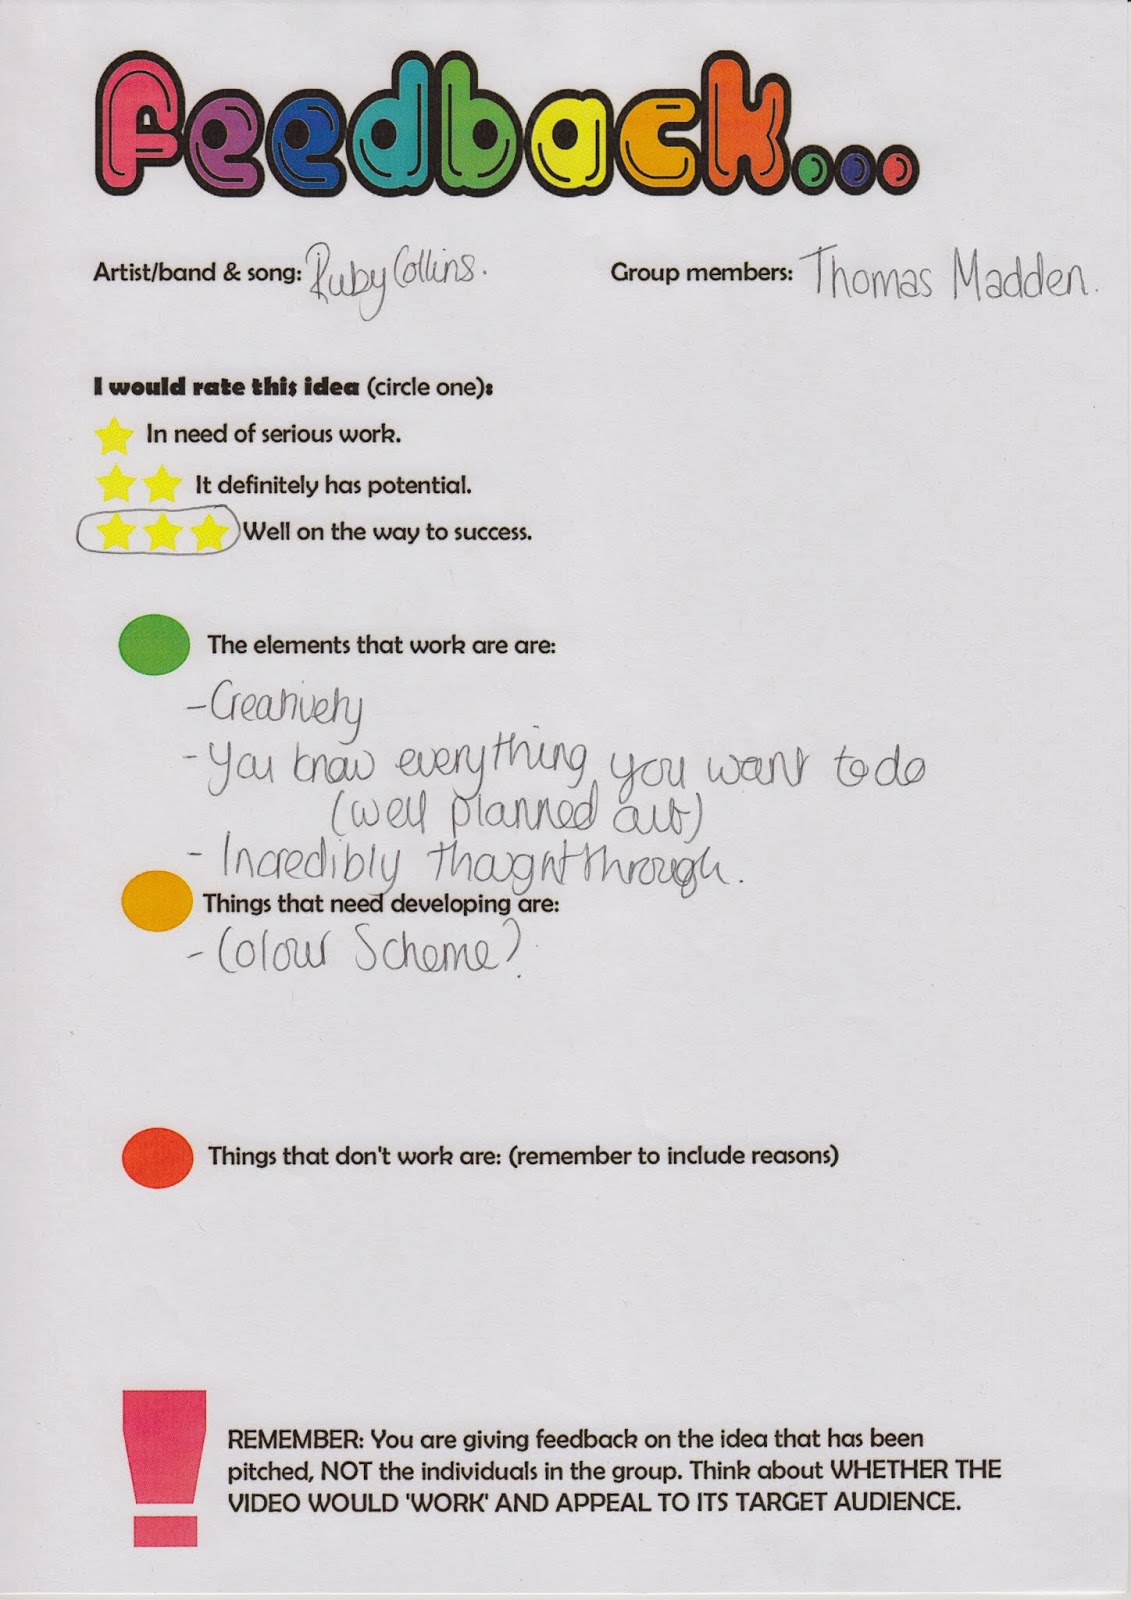 Feedback...
Artist/band & song: Ruby Collins. Group members: Thomas Madden.
I would rate this idea (circle one):
In need of serious work.
It definitely has potential.
Well on the way to success.
The elements that work are are:
- Creativety
- You know everything you want to do
(well planned out)
- Incredibly thought through.
Things that need developing are:
- Colour Scheme?
Things that don't work are: (remember to include reasons)
REMEMBER: You are giving feedback on the idea that has been
pitched, NOT the individuals in the group. Think about WHETHER THE
VIDEO WOULD 'WORK' AND APPEAL TO ITS TARGET AUDIENCE.